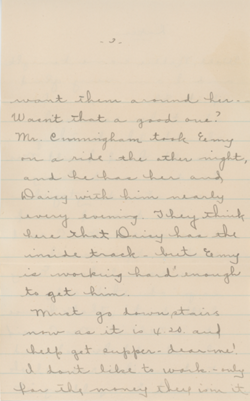 - 3 -
want them around her.
Wasn't that a good one?
Mr. Cunningham took Esmy
on a ride the other night,
and he has her and
Daisy with him nearly
every evening. They think
here that Daisy has the
inside track - but Esmy
is working hard enough
to get him.
Must go downstairs
now as it is 4:20. and
help get supper - dear me!
I don't like to work - only
for the money there is in it